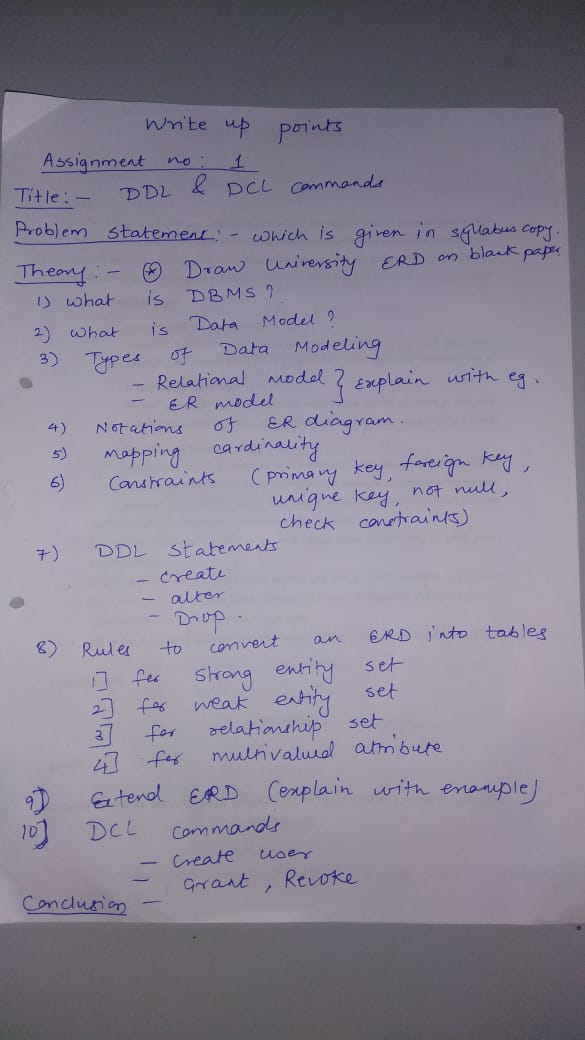 Write up points
Assignment no : 1
Title :- DDL & DCL commands
Problem statement :- which is given in syllabus copy.
Theory :- * Draw University ERD on blank paper
1) what is DBMS ?
2) what is Data Model ?
3) Types of Data Modeling
- Relational model } explain with eg.
- ER model
4) Notations of ER diagram.
5) mapping cardinality
6) Constraints (primary key, foreign key,
unique key, not null,
check constraints)
7) DDL statements
- create
- alter
- Drop.
8) Rules to convert an ERD into tables
1] for strong entity set
2] for weak entity set
3] for relationship set
4] for multivalued attribute
9] Extend ERD (explain with example)
10] DCL commands
- Create user
- Grant, Revoke
Conclusion -